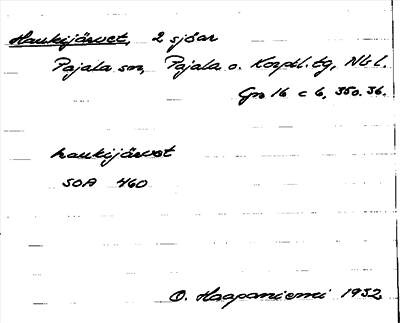 Haukijärvet, 2 sjöar
Pajala sn, Pajala o. Korpil. tg, Nb l.
Gr 16 c 6, 350.36.
haukijärvet
SOA 460
O. Haapaniemi 1932